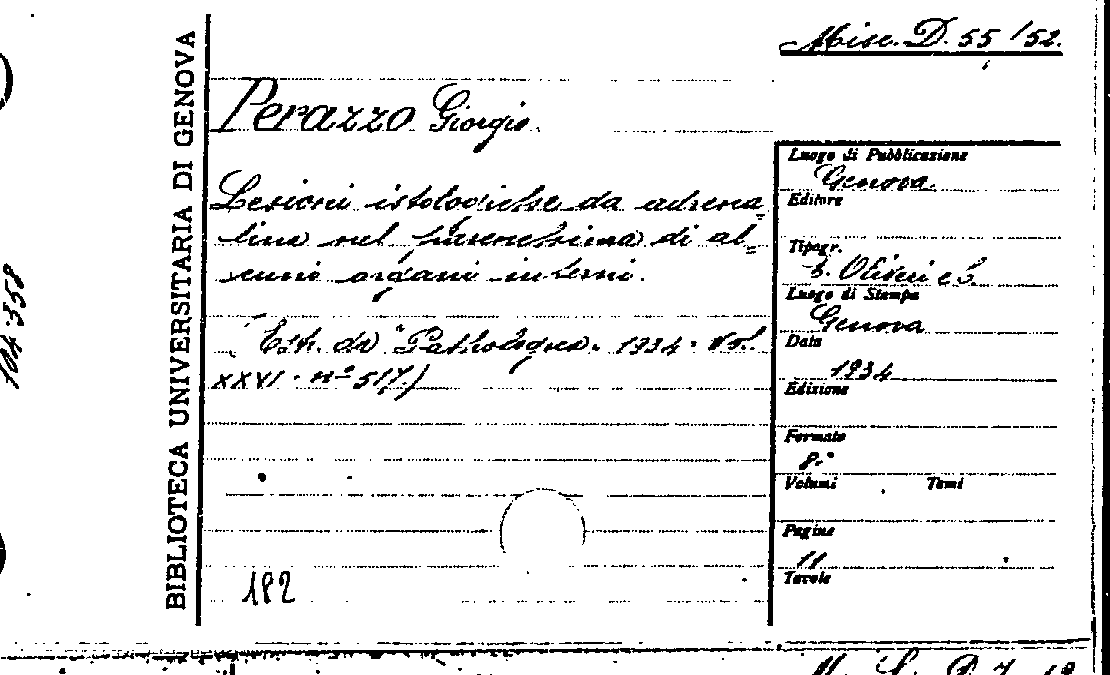 Misc. D. 55/52.
BIBLIOTECA UNIVERSITARIA DI GENOVA
104358
Perazzo Giorgio.
Lesioni istologiche da adrena=
lina nel parenchima di al=
cuni organi interni.
(Estr. da "Pathologica. 1934. Vol.
XXVI. nº 517.)
182
Luogo di Pubblicazione
Genova.
Editore
Tipogr.
Olivieri e C.
Luogo di Stampa
Genova
Data
1934
Edizione
Formato
8.°
Volumi Tomi
Pagine
11
Tavole